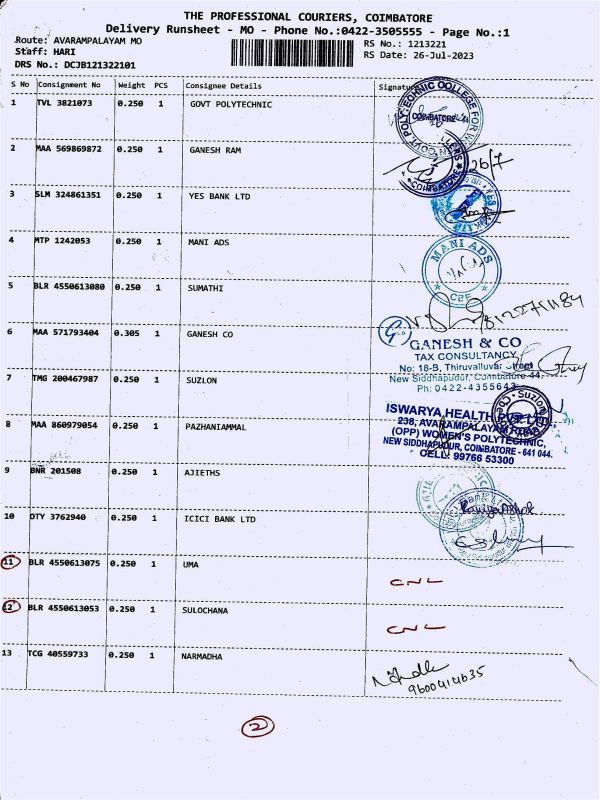 THE PROFESSIONAL COURIERS, COIMBATORE
Delivery Runsheet - MO - Phone No.:0422-3505555 - Page No.:1
Route: AVARAMPALAYAM MO
RS No.: 1213221
Staff: HARI
RS Date: 26-Jul-2023
DRS No.: DCJB121322101
S No Consignment No Weight PCS Consignee Details Signature
1 TVL 3821073 0.250 1 GOVT POLYTECHNIC
COIMBATORE
2 MAA 569869872 0.250 1 GANESH RAM
26/7
COIMBATORE
3 SLM 324861351 0.250 1 YES BANK LTD
4 MTP 1242053 0.250 1 MANI ADS
MANI ADS
CBE
5 BLR 4550613080 0.250 1 SUMATHI
6 MAA 571793404 0.305 1 GANESH CO
GANESH & CO
TAX CONSULTANCY
No: 18-B, Thiruvalluvar Street
New Siddhapudur, Coimbatore-44.
Ph: 0422-4355643
7 TMG 200467987 0.250 1 SUZLON
Suzlon
ISWARYA HEALTH PVT. LTD.
238, AVARAMPALAYAM ROAD
(OPP) WOMEN'S POLYTECHNIC,
NEW SIDDHAPUDUR, COIMBATORE - 641 044.
CELL: 99766 53300
8 MAA 860979054 0.250 1 PAZHANIAMMAL
9 BNR 201508 0.250 1 AJIETHS
10 OTY 3762940 0.250 1 ICICI BANK LTD
11 BLR 4550613075 0.250 1 UMA
CNL
12 BLR 4550613053 0.250 1 SULOCHANA
CNL
13 TCG 40559733 0.250 1 NARMADHA
9600414635
2